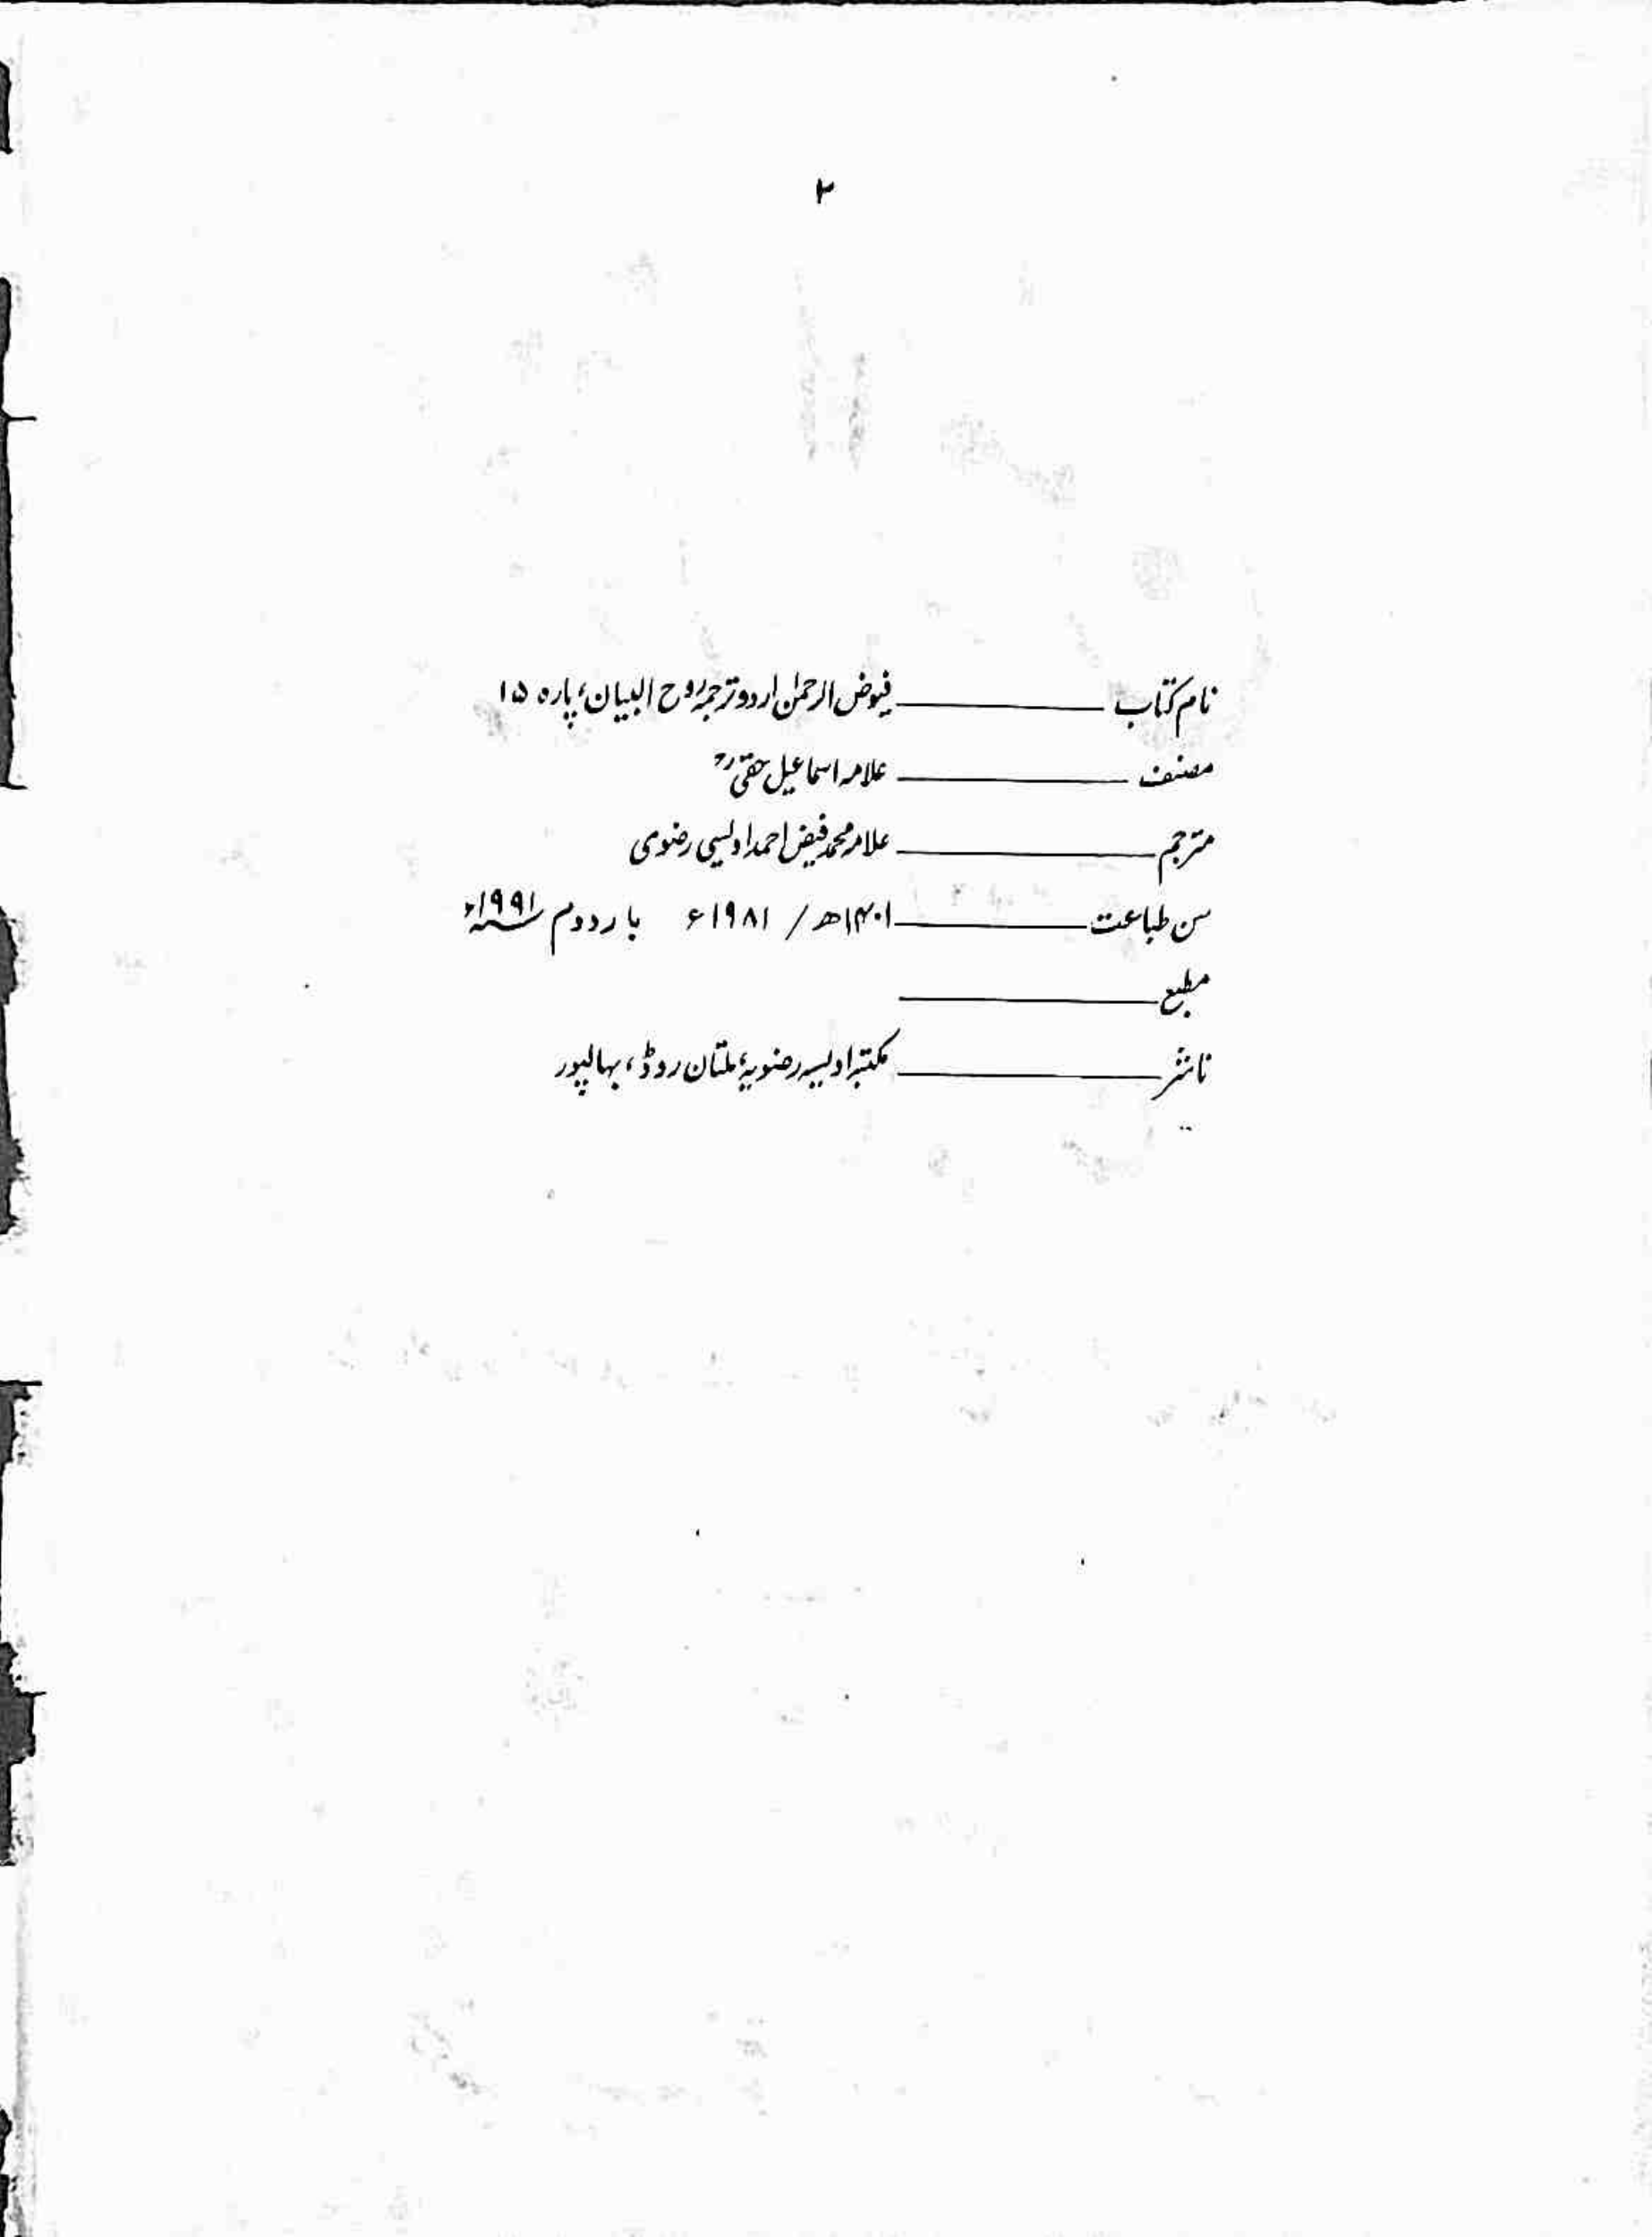 ۲
نام کتاب ــــــــــ فیوض الرحمٰن اردو ترجمہ روح البیان، پارہ ۱۵
مصنف ــــــــــ علامہ اسماعیل حقی رح
مترجم ــــــــــ علامہ محمد فیض احمد اویسی رضوی
سن طباعت ــــــــــ ۱۴۰۱ھ / ۱۹۸۱ء بار دوم ۱۹۹۱ء
مطبع ــــــــــ
ناشر ــــــــــ مکتبہ اویسیہ رضویہ، ملتان روڈ، بہالپور